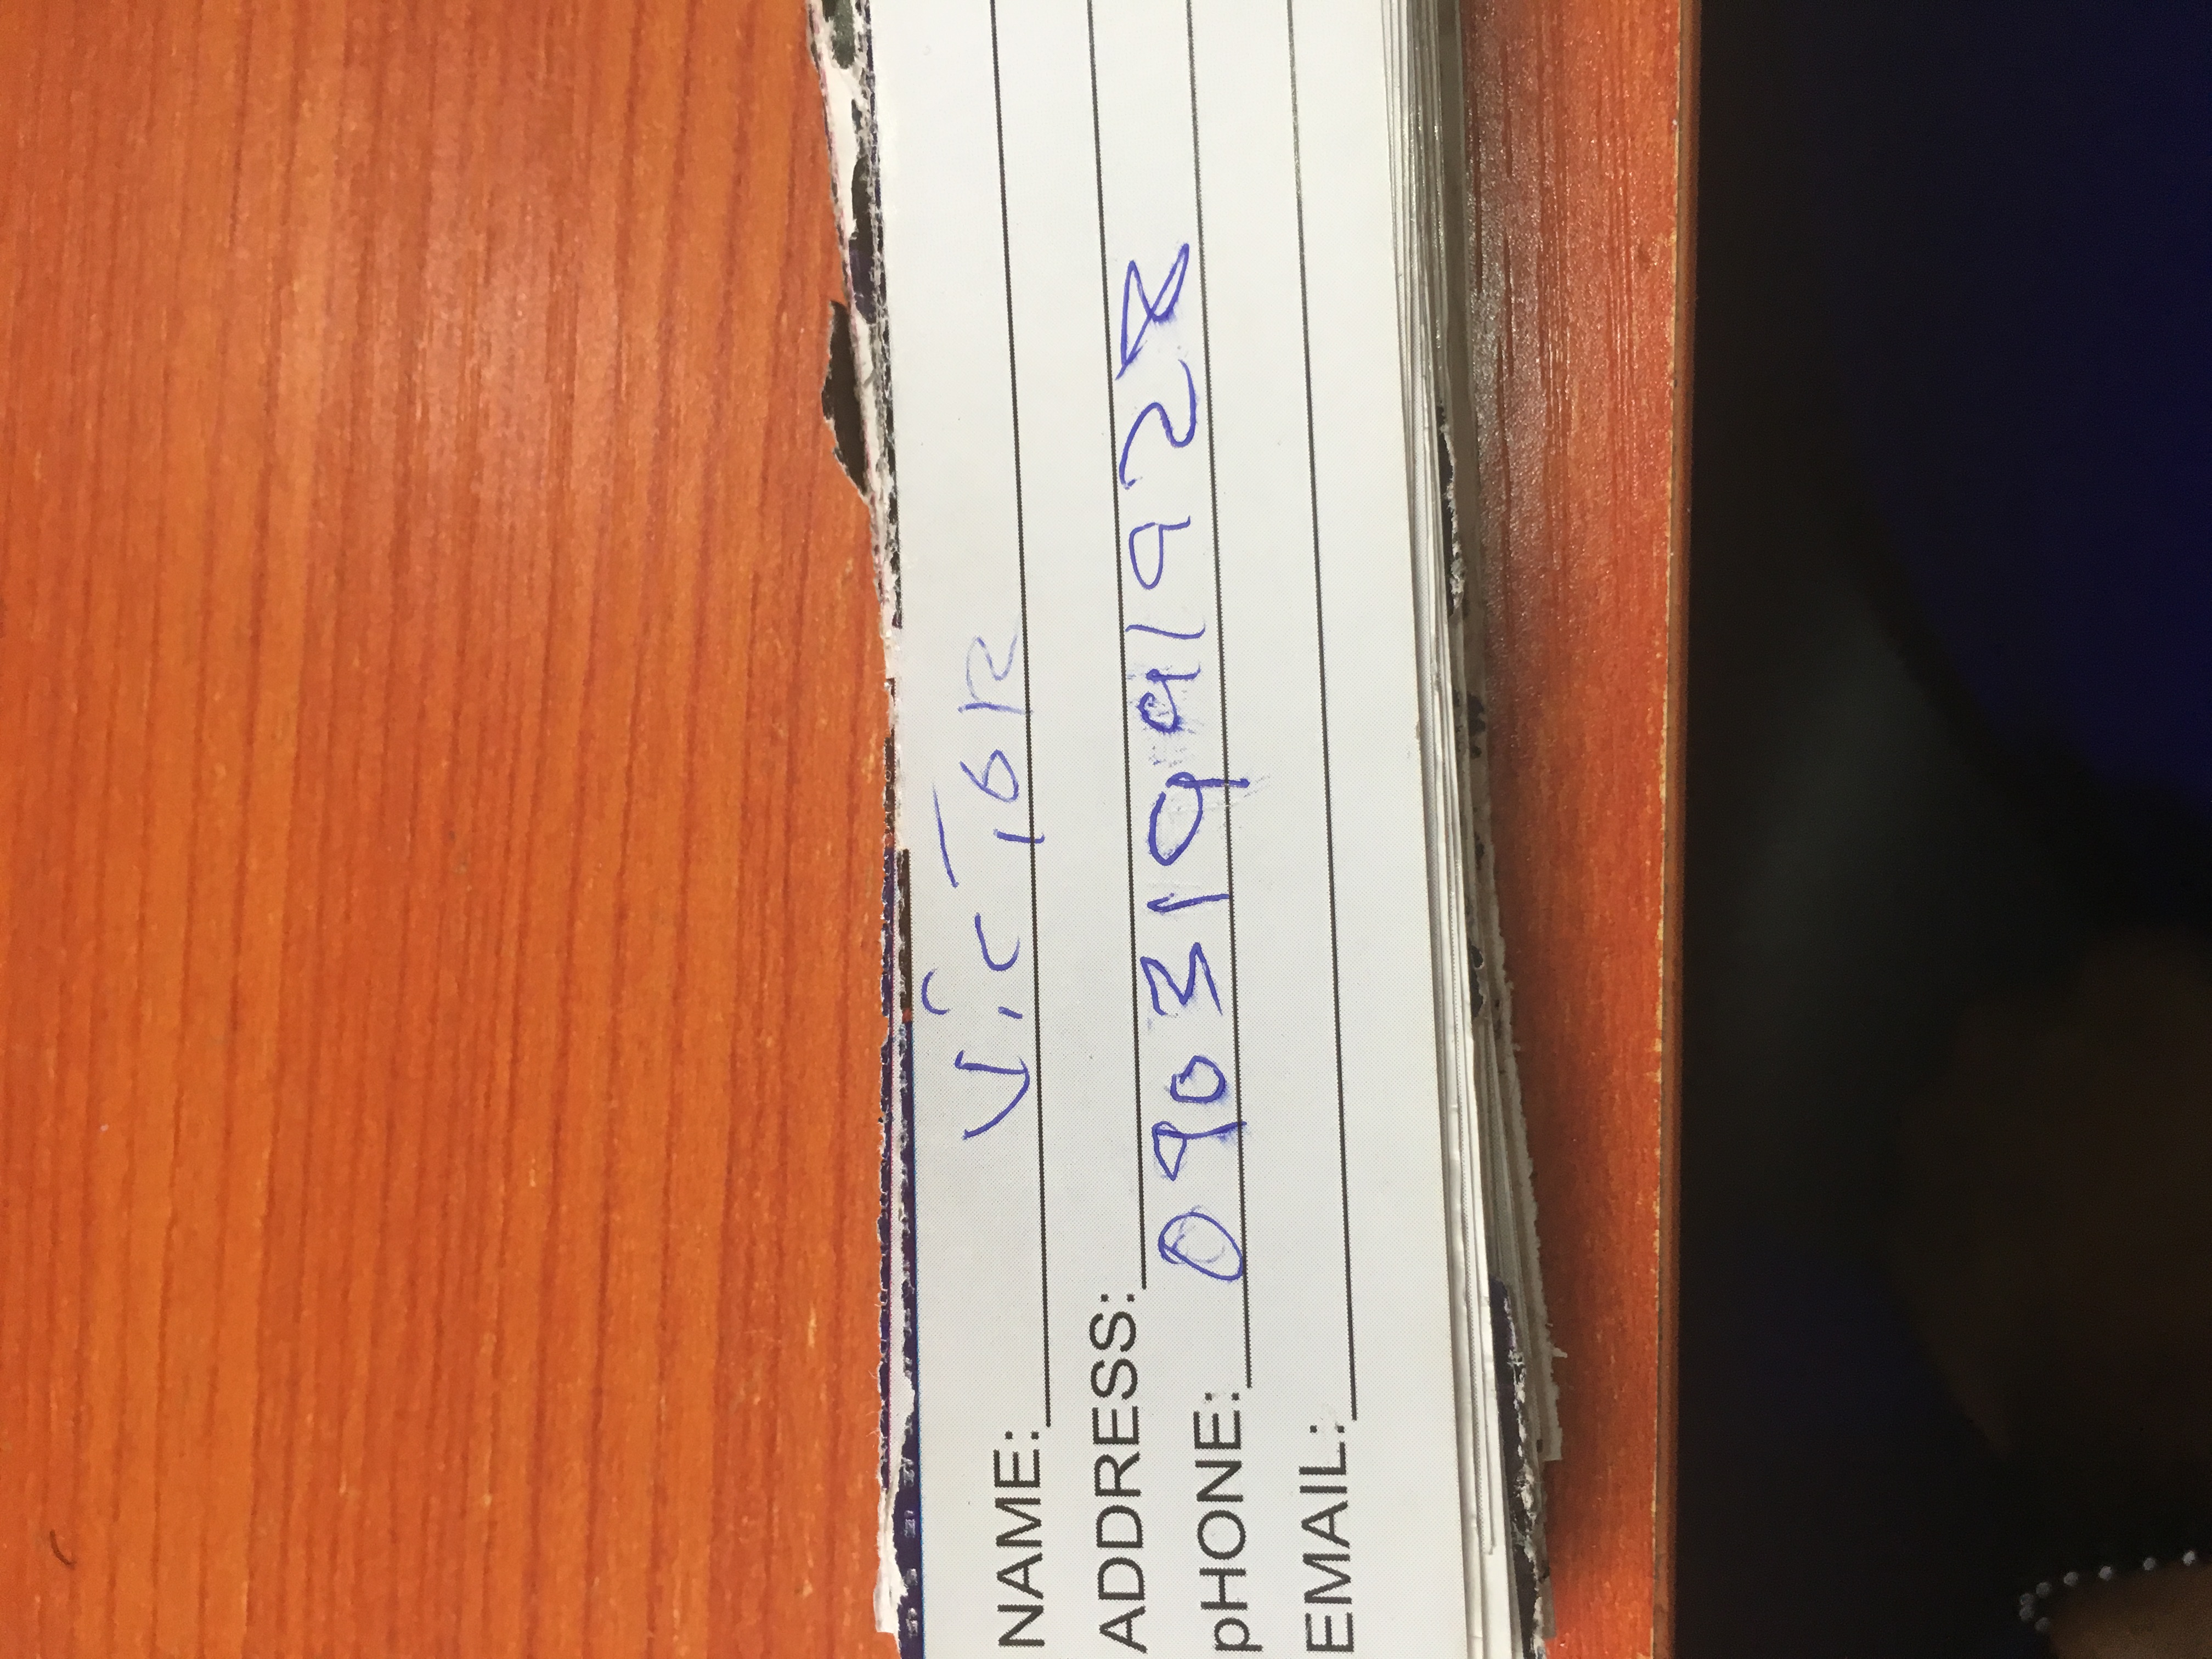 NAME: VicToR
ADDRESS:
pHONE: 09031991928
EMAIL: